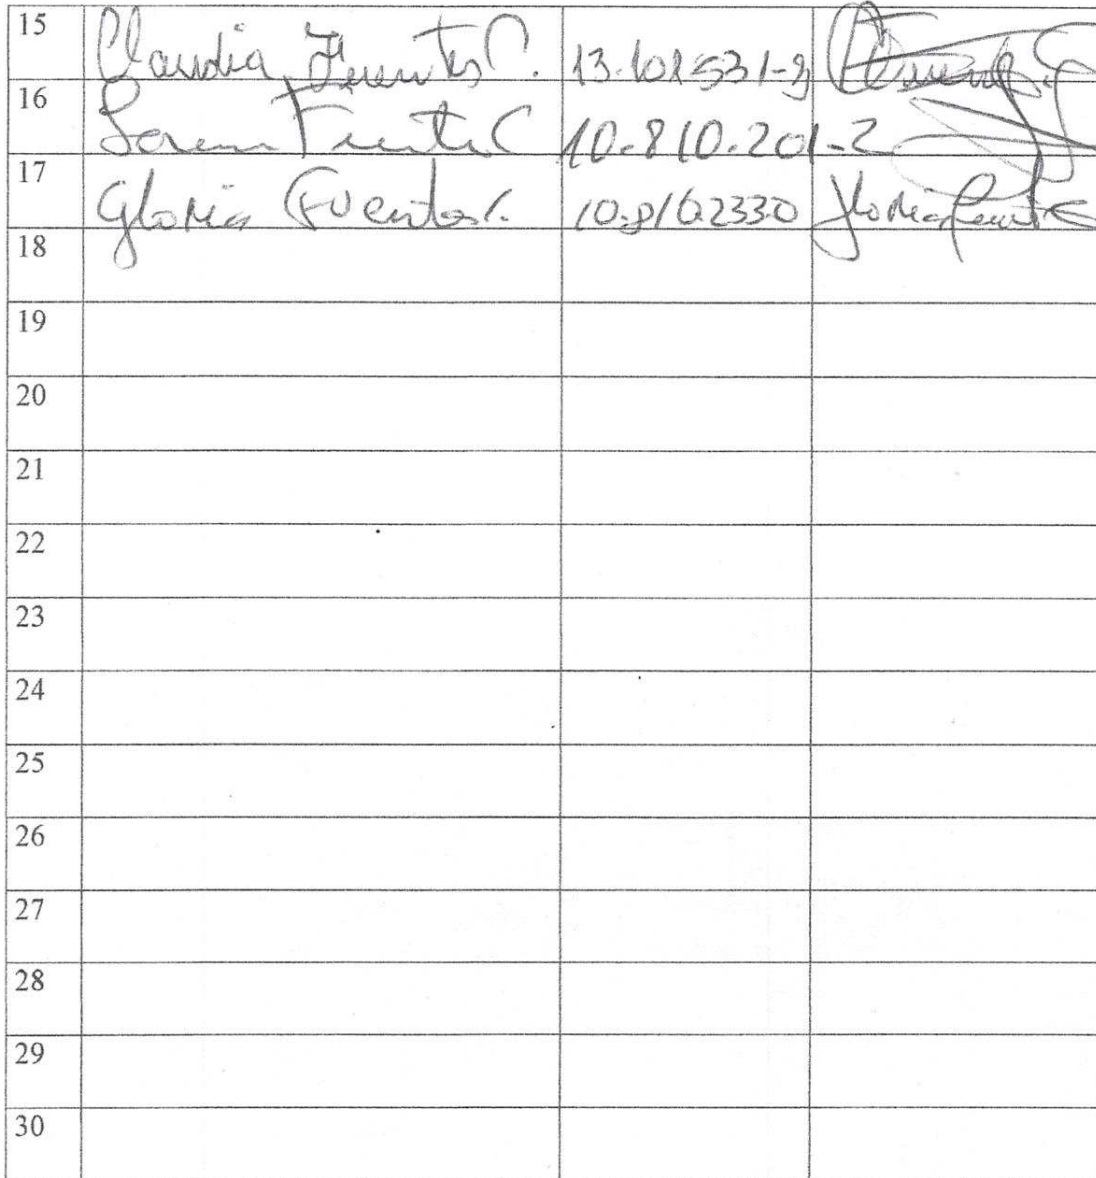 15 Claudia Fuentes C. 13.101531-9
16 Fuentes C 10-810.201-2
17 Gloria Fuentes C. 10.8102330 Gloria Fuentes
18
19
20
21
22
23
24
25
26
27
28
29
30